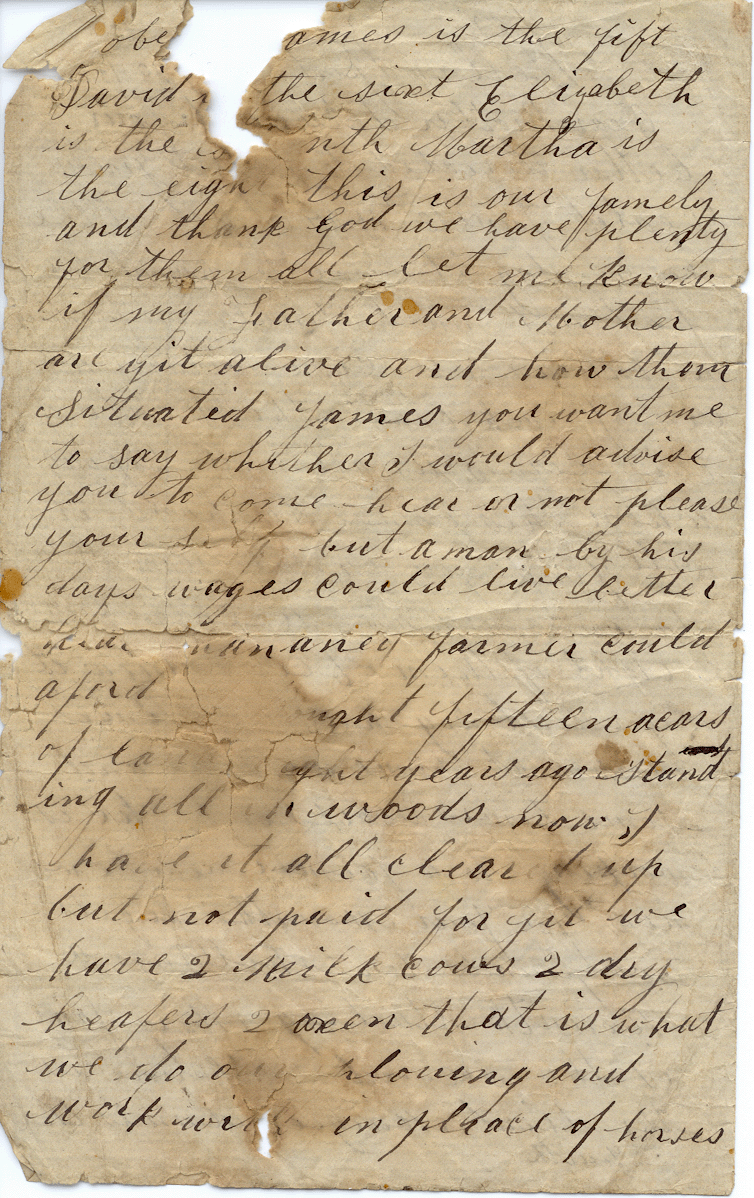 ames is the fift
David the sixt Elizabeth
is the nth Martha is
the eigh this is our famely
and thank God we have plenty
for them all let me know
if my Father and Mother
are yit alive and how them
situated James you want me
to say whether I would advise
you to come hear or not please
your self but a man by his
days wages could live better
farmer could
aford fifteen acars
of years ago stand
ing all woods now I
have it all cleared up
but not paid for yit we
have 2 milk cows 2 dry
heafers 2 oxen that is what
we do our plowing and
work with in plrace of horses